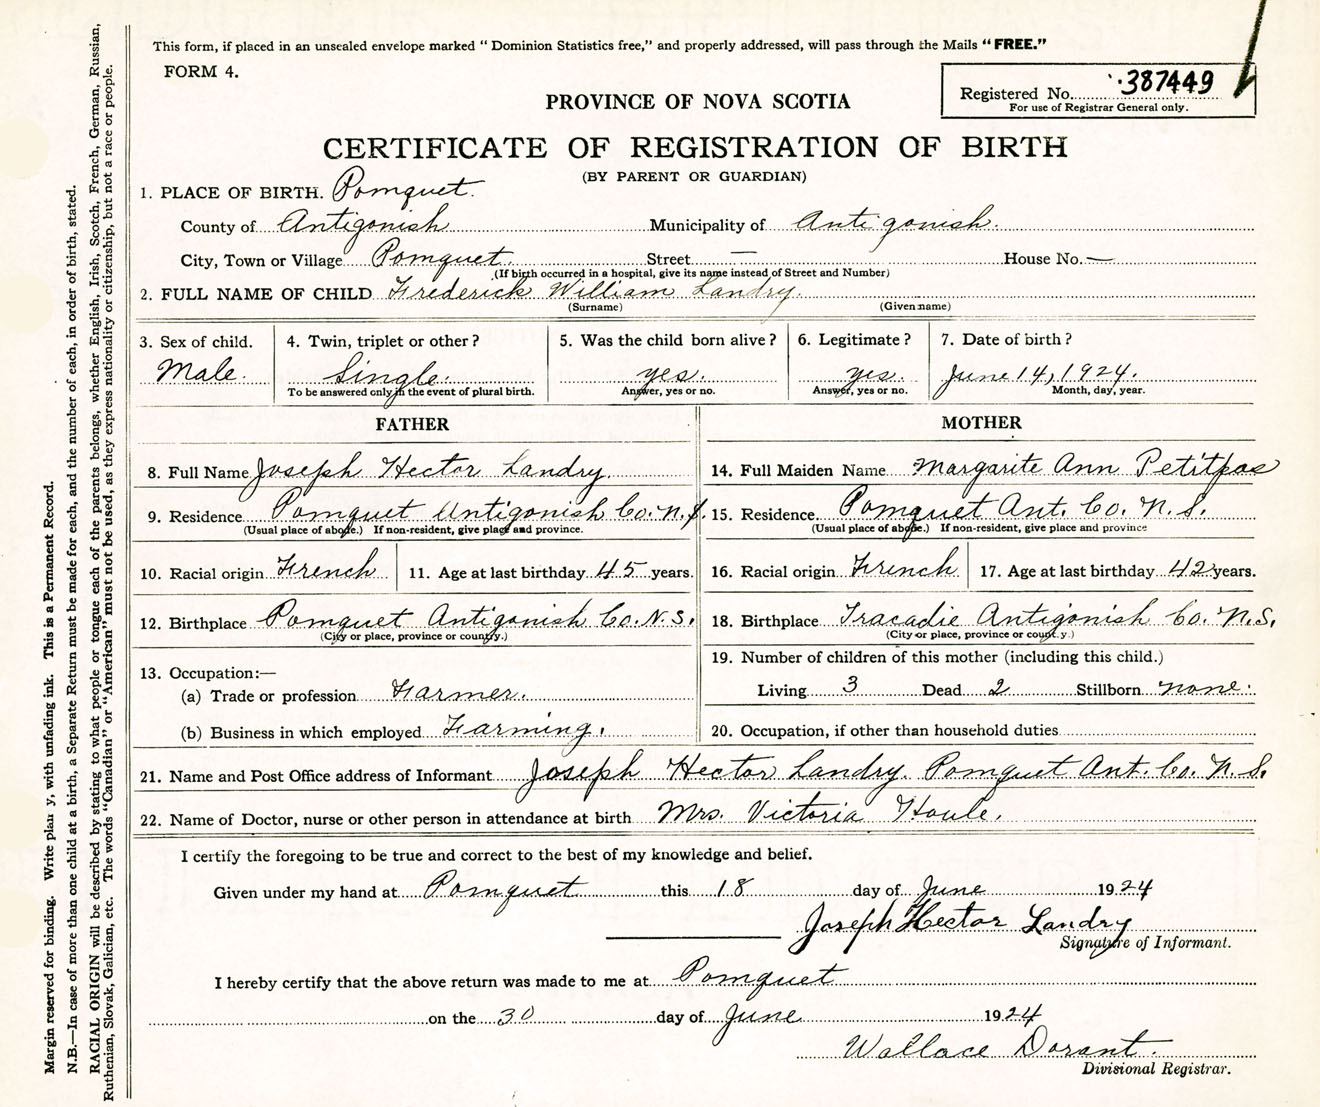 This form, if placed in an unsealed envelope marked “ Dominion Statistics free,” and properly addressed, will pass through the Mails “ FREE.”
FORM 4.
Registered No. 387449
For use of Registrar General only.
PROVINCE OF NOVA SCOTIA
CERTIFICATE OF REGISTRATION OF BIRTH
(BY PARENT OR GUARDIAN)
1. PLACE OF BIRTH. Pomquet.
County of Antigonish Municipality of Antigonish.
City, Town or Village Pomquet Street — House No. —
(If birth occurred in a hospital, give its name instead of Street and Number)
2. FULL NAME OF CHILD Frederick William Landry.
(Surname) (Given name)
3. Sex of child. 4. Twin, triplet or other ? 5. Was the child born alive ? 6. Legitimate ? 7. Date of birth ?
Male. Single. yes. yes. June 14, 1924.
To be answered only in the event of plural birth. Answer, yes or no. Answer, yes or no. Month, day, year.
FATHER MOTHER
8. Full Name Joseph Hector Landry. 14. Full Maiden Name Margarite Ann Petitpas
9. Residence Pomquet Antigonish Co. N. S. 15. Residence Pomquet Ant. Co. N. S.
(Usual place of abode.) If non-resident, give place and province. (Usual place of abode.) If non-resident, give place and province
10. Racial origin French 11. Age at last birthday 45 years. 16. Racial origin French 17. Age at last birthday 42 years.
12. Birthplace Pomquet Antigonish Co. N. S. 18. Birthplace Tracadie Antigonish Co. N. S.
(City or place, province or country.) (City or place, province or country.)
13. Occupation:— 19. Number of children of this mother (including this child.)
(a) Trade or profession Farmer. Living 3 Dead 2 Stillborn none.
(b) Business in which employed Farming. 20. Occupation, if other than household duties
21. Name and Post Office address of Informant Joseph Hector Landry. Pomquet Ant. Co. N. S.
22. Name of Doctor, nurse or other person in attendance at birth Mrs. Victoria Houle.
I certify the foregoing to be true and correct to the best of my knowledge and belief.
Given under my hand at Pomquet this 18 day of June 1924
Joseph Hector Landry
Signature of Informant.
I hereby certify that the above return was made to me at Pomquet
on the 30 day of June 1924
Wallace Dorant.
Divisional Registrar.
Margin reserved for binding. Write plainly, with unfading ink. This is a Permanent Record.
N.B.—In case of more than one child at a birth, a Separate Return must be made for each, and the number of each, in order of birth, stated.
RACIAL ORIGIN will be described by stating to what people or tongue each of the parents belongs, whether English, Irish, Scotch, French, German, Russian,
Ruthenian, Slovak, Galician, etc. The words “Canadian” or “American” must not be used, as they express nationality or citizenship, but not a race or people.